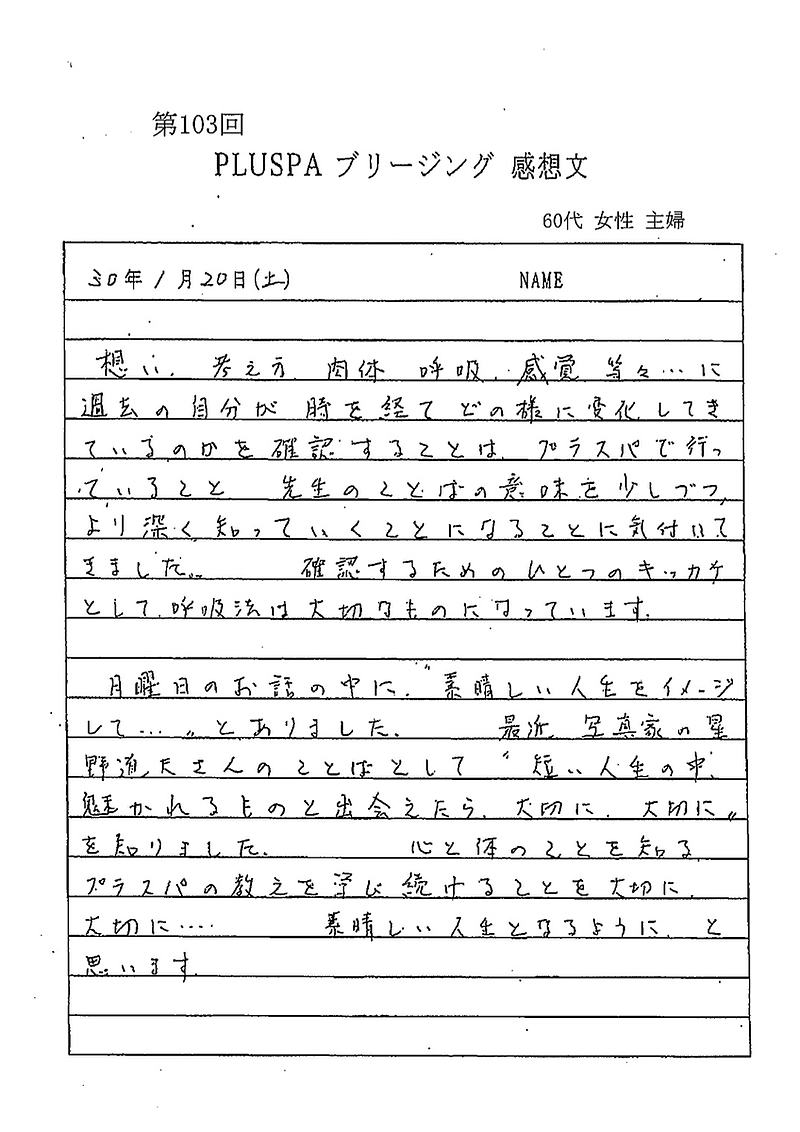 第103回
PLUSPA ブリージング 感想文
60代 女性 主婦
30年1月20日(土) NAME
想い、考え方 肉体 呼吸、感覚 等々…に
過去の自分が 時を経て どの様に変化してき
ているのかを確認することは、プラスパで行っ
ていること 先生のことばの意味を少しづつ、
より深く知っていくことになることに気付いて
きました。 確認するためのひとつのキッカケ
として、呼吸法は大切なものになっています。
月曜日のお話の中に、〝素晴しい人生をイメージ
して…〟とありました。 最近、写真家の星
野道夫さんのことばとして 〝短い人生の中、
魅かれるものと出会えたら、大切に、大切に〟
を知りました。 心と体のことを知る
プラスパの教えを学び続けることを大切に、
大切に…. 素晴しい人生となるように、と
思います。